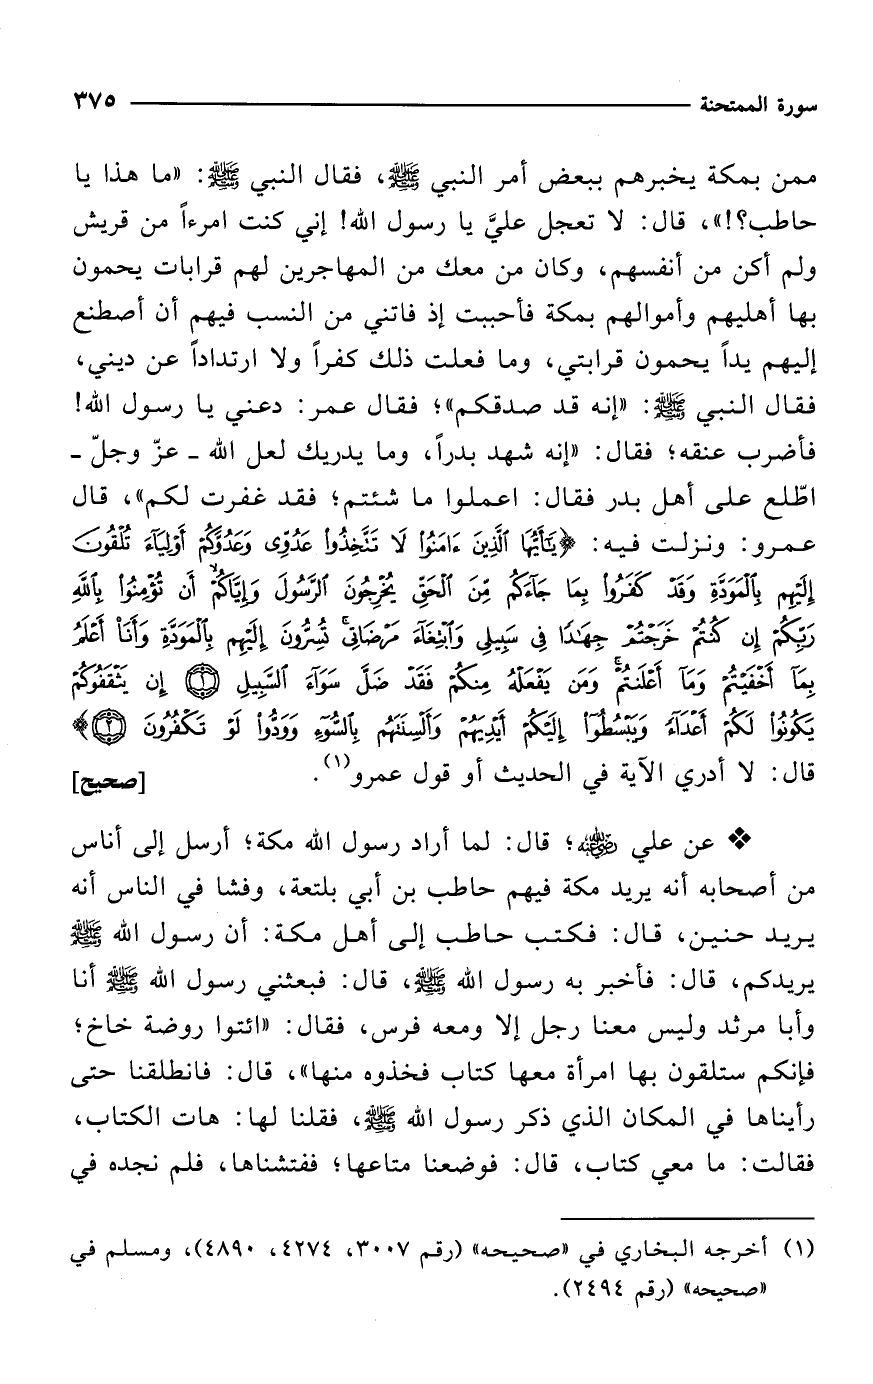 سورة الممتحنة ٣٧٥
ممن بمكة يخبرهم ببعض أمر النبي ﷺ، فقال النبي ﷺ: «ما هذا يا
حاطب؟!»، قال: لا تعجل عليَّ يا رسول الله! إني كنت امرءاً من قريش
ولم أكن من أنفسهم، وكان من معك من المهاجرين لهم قرابات يحمون
بها أهليهم وأموالهم بمكة فأحببت إذ فاتني من النسب فيهم أن أصطنع
إليهم يداً يحمون قرابتي، وما فعلت ذلك كفراً ولا ارتداداً عن ديني،
فقال النبي ﷺ: «إنه قد صدقكم»؛ فقال عمر: دعني يا رسول الله!
فأضرب عنقه؛ فقال: «إنه شهد بدراً، وما يدريك لعل الله ـ عزّ وجلّ ـ
اطّلع على أهل بدر فقال: اعملوا ما شئتم؛ فقد غفرت لكم»، قال
عمرو: ونزلت فيه: ﴿يَٰٓأَيُّهَا ٱلَّذِينَ ءَامَنُوا۟ لَا تَتَّخِذُوا۟ عَدُوِّى وَعَدُوَّكُمْ أَوْلِيَآءَ تُلْقُونَ
إِلَيْهِم بِٱلْمَوَدَّةِ وَقَدْ كَفَرُوا۟ بِمَا جَآءَكُم مِّنَ ٱلْحَقِّ يُخْرِجُونَ ٱلرَّسُولَ وَإِيَّاكُمْ ۙ أَن تُؤْمِنُوا۟ بِٱللَّهِ
رَبِّكُمْ إِن كُنتُمْ خَرَجْتُمْ جِهَٰدًا فِى سَبِيلِى وَٱبْتِغَآءَ مَرْضَاتِى ۚ تُسِرُّونَ إِلَيْهِم بِٱلْمَوَدَّةِ وَأَنَا۠ أَعْلَمُ
بِمَآ أَخْفَيْتُمْ وَمَآ أَعْلَنتُمْ ۚ وَمَن يَفْعَلْهُ مِنكُمْ فَقَدْ ضَلَّ سَوَآءَ ٱلسَّبِيلِ ۝١ إِن يَثْقَفُوكُمْ
يَكُونُوا۟ لَكُمْ أَعْدَآءً وَيَبْسُطُوٓا۟ إِلَيْكُمْ أَيْدِيَهُمْ وَأَلْسِنَتَهُم بِٱلسُّوٓءِ وَوَدُّوا۟ لَوْ تَكْفُرُونَ ۝٢﴾
قال: لا أدري الآية في الحديث أو قول عمرو(١). [صحيح]
❖ عن علي رضي الله عنه؛ قال: لما أراد رسول الله مكة؛ أرسل إلى أناس
من أصحابه أنه يريد مكة فيهم حاطب بن أبي بلتعة، وفشا في الناس أنه
يريد حنين، قال: فكتب حاطب إلى أهل مكة: أن رسول الله ﷺ
يريدكم، قال: فأخبر به رسول الله ﷺ، قال: فبعثني رسول الله ﷺ أنا
وأبا مرثد وليس معنا رجل إلا ومعه فرس، فقال: «ائتوا روضة خاخ؛
فإنكم ستلقون بها امرأة معها كتاب فخذوه منها»، قال: فانطلقنا حتى
رأيناها في المكان الذي ذكر رسول الله ﷺ، فقلنا لها: هات الكتاب،
فقالت: ما معي كتاب، قال: فوضعنا متاعها؛ ففتشناها، فلم نجده في
(١) أخرجه البخاري في «صحيحه» (رقم ٣٠٠٧، ٤٢٧٤، ٤٨٩٠)، ومسلم في
«صحيحه» (رقم ٢٤٩٤).